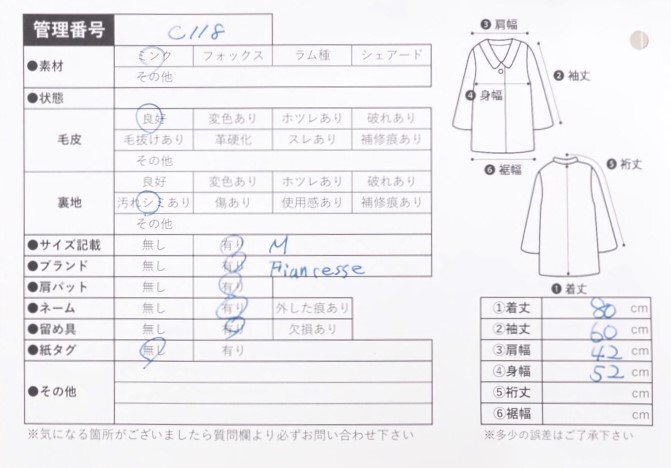 管理番号 C118
●素材 ミンク フォックス ラム種 シェアード
その他
●状態
毛皮 良好 変色あり ホツレあり 破れあり
毛抜けあり 革硬化 スレあり 補修痕あり
その他
裏地 良好 変色あり ホツレあり 破れあり
汚れシミあり 傷あり 使用感あり 補修痕あり
その他
●サイズ記載 無し 有り M
●ブランド 無し 有り Fiancesse
●肩パット 無し 有り
●ネーム 無し 有り 外した痕あり
●留め具 無し 有り 欠損あり
●紙タグ 無し 有り
●その他
※気になる箇所がございましたら質問欄より必ずお問い合わせ下さい
❸肩幅
❷袖丈
❹身幅
❻裾幅
❺裄丈
❶着丈
①着丈 80 cm
②袖丈 60 cm
③肩幅 42 cm
④身幅 52 cm
⑤裄丈 cm
⑥裾幅 cm
※多少の誤差はご了承下さい